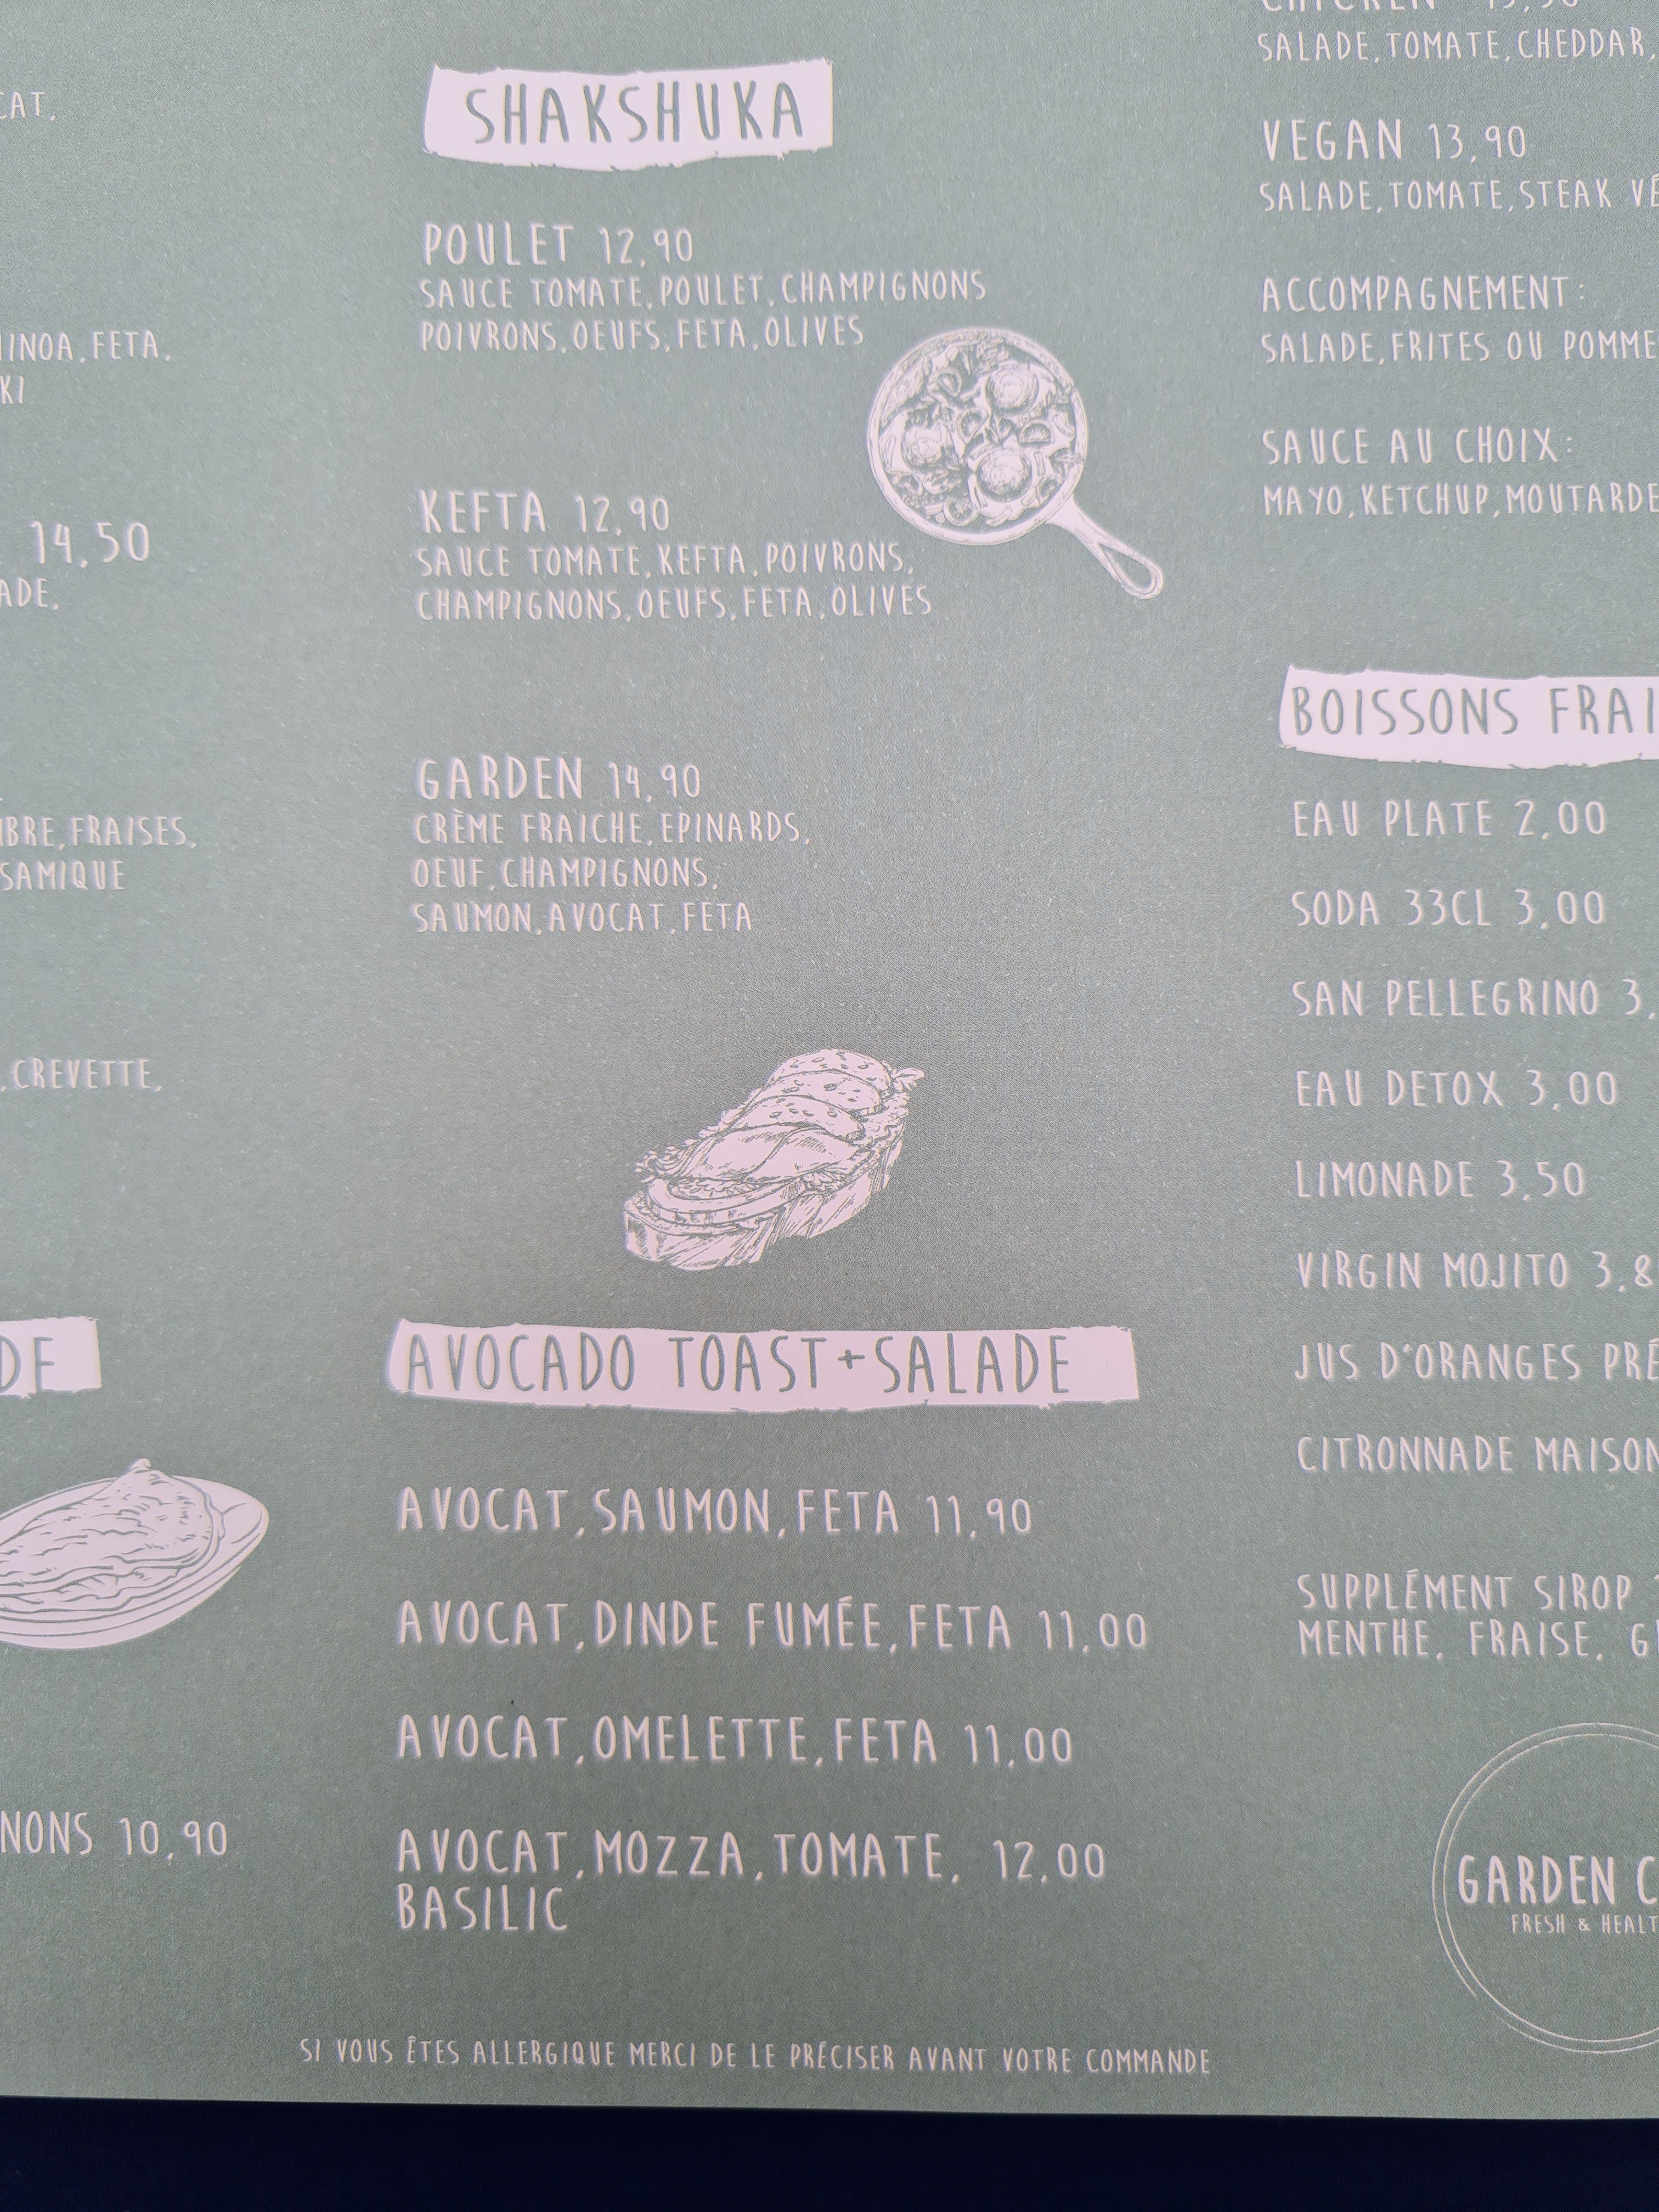 CAT,
INOA,FETA,
KI
14,50
ADE,
BRE,FRAISES,
SAMIQUE
,CREVETTE,
NONS 10,90
SHAKSHUKA
POULET 12,90
SAUCE TOMATE,POULET,CHAMPIGNONS
POIVRONS,OEUFS,FETA,OLIVES
KEFTA 12,90
SAUCE TOMATE,KEFTA,POIVRONS,
CHAMPIGNONS,OEUFS,FETA,OLIVES
GARDEN 14,90
CRÈME FRAICHE,EPINARDS,
OEUF,CHAMPIGNONS,
SAUMON,AVOCAT,FETA
AVOCADO TOAST+SALADE
AVOCAT,SAUMON,FETA 11,90
AVOCAT,DINDE FUMÉE,FETA 11,00
AVOCAT,OMELETTE,FETA 11,00
AVOCAT,MOZZA,TOMATE, 12,00
BASILIC
SALADE,TOMATE,CHEDDAR,
VEGAN 13,90
SALADE,TOMATE,STEAK VÉ
ACCOMPAGNEMENT:
SALADE,FRITES OU POMME
SAUCE AU CHOIX:
MAYO,KETCHUP,MOUTARDE
BOISSONS FRAI
EAU PLATE 2,00
SODA 33CL 3,00
SAN PELLEGRINO 3,
EAU DETOX 3,00
LIMONADE 3,50
VIRGIN MOJITO 3,8
JUS D'ORANGES PRÉ
CITRONNADE MAISON
SUPPLÉMENT SIROP
MENTHE, FRAISE, G
GARDEN C
FRESH & HEALT
SI VOUS ÊTES ALLERGIQUE MERCI DE LE PRÉCISER AVANT VOTRE COMMANDE